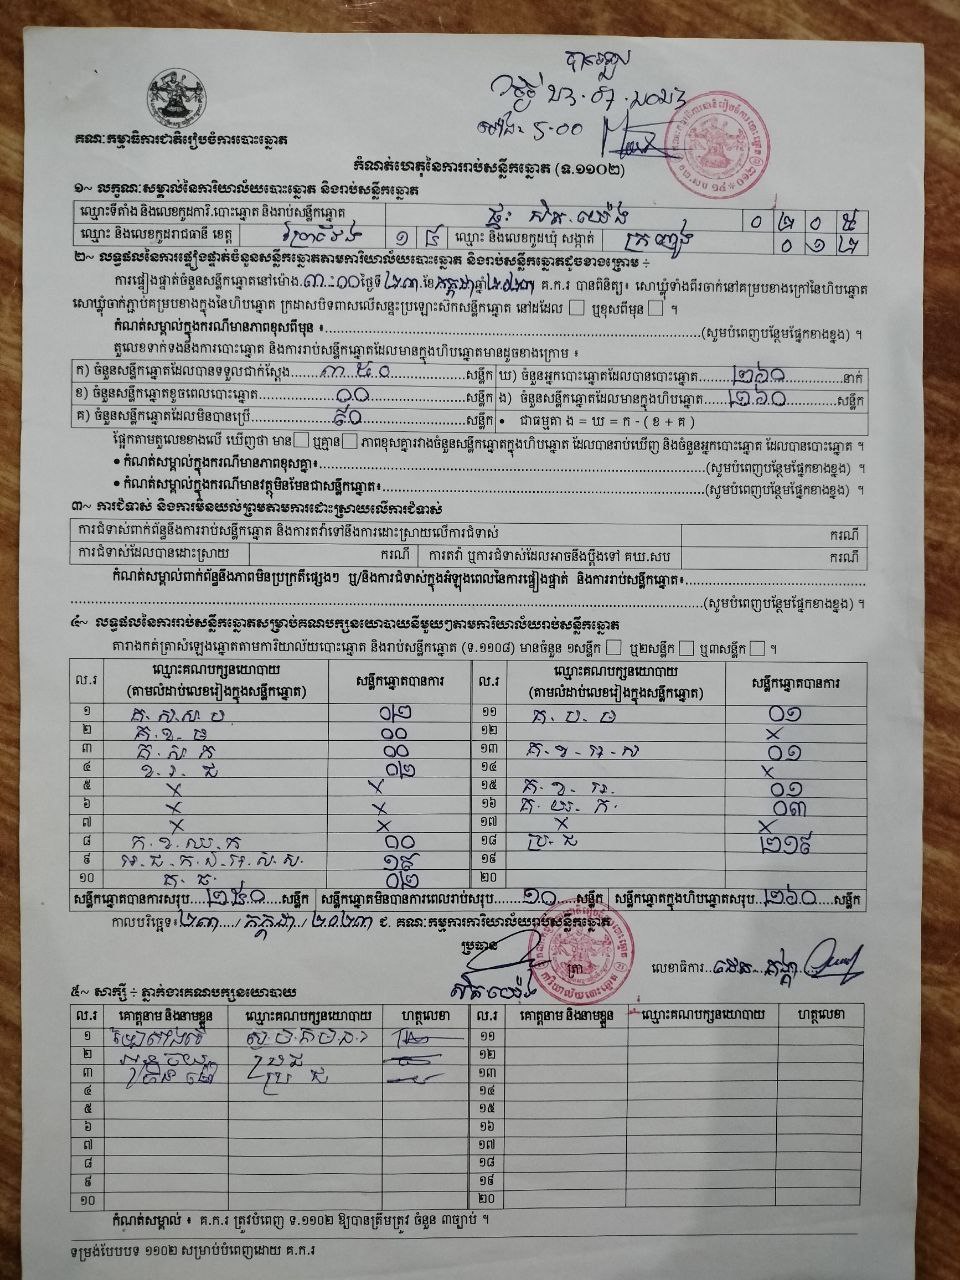 បានឃើញ
ថ្ងៃទី ២៣.០៧.២០២៣
ម៉ោង ៤.០០
គណៈកម្មាធិការជាតិរៀបចំការបោះឆ្នោត
កំណត់ហេតុនៃការរាប់សន្លឹកឆ្នោត (ទ.១១០២)
១~ លក្ខណៈសម្គាល់នៃការិយាល័យបោះឆ្នោត និងរាប់សន្លឹកឆ្នោត
ឈ្មោះទីតាំង និងលេខកូដការិ.បោះឆ្នោត និងរាប់សន្លឹកឆ្នោត ០ ២ ០ ៥
ឈ្មោះ និងលេខកូដរាជធានី ខេត្ត ព្រៃវែង ១ ៤ ឈ្មោះ និងលេខកូដឃុំ សង្កាត់ ០ ១ ២
២~ លទ្ធផលនៃការផ្ទៀងផ្ទាត់ចំនួនសន្លឹកឆ្នោតតាមការិយាល័យបោះឆ្នោត និងរាប់សន្លឹកឆ្នោតដូចខាងក្រោម ÷
ការផ្ទៀងផ្ទាត់ចំនួនសន្លឹកឆ្នោតនៅម៉ោង ៣.០០ ថ្ងៃទី ២៣ ខែ កក្កដា ឆ្នាំ ២០២៣ គ.ក.រ បានពិនិត្យ៖ សោឃ្លុំទាំងពីរចាក់នៅគម្របខាងក្រៅនៃហិបឆ្នោត
សោឃ្លុំចាក់ភ្ជាប់គម្របខាងក្នុងនៃហិបឆ្នោត ក្រដាសបិទពាសលើសន្ទះប្រឡោះស៊កសន្លឹកឆ្នោត នៅដដែល ☐ ឬខុសពីមុន ☐ ។
កំណត់សម្គាល់ក្នុងករណីមានភាពខុសពីមុន ៖ (សូមបំពេញបន្ថែមផ្នែកខាងខ្នង) ។
តួលេខទាក់ទងនឹងការបោះឆ្នោត និងការរាប់សន្លឹកឆ្នោតដែលមានក្នុងហិបឆ្នោតមានដូចខាងក្រោម ៖
ក) ចំនួនសន្លឹកឆ្នោតដែលបានទទួលជាក់ស្តែង ៣៥០ សន្លឹក ឃ) ចំនួនអ្នកបោះឆ្នោតដែលបានបោះឆ្នោត ២៦០ នាក់
ខ) ចំនួនសន្លឹកឆ្នោតខូចពេលបោះឆ្នោត ០០ សន្លឹក ង) ចំនួនសន្លឹកឆ្នោតដែលមានក្នុងហិបឆ្នោត ២៦០ សន្លឹក
គ) ចំនួនសន្លឹកឆ្នោតដែលមិនបានប្រើ ៩០ សន្លឹក • ជាធម្មតា ង = ឃ = ក - ( ខ + គ )
ផ្អែកតាមតួលេខខាងលើ ឃើញថា មាន ☐ ឬគ្មាន ☐ ភាពខុសគ្នារវាងចំនួនសន្លឹកឆ្នោតក្នុងហិបឆ្នោត ដែលបានរាប់ឃើញ និងចំនួនអ្នកបោះឆ្នោត ដែលបានបោះឆ្នោត ។
• កំណត់សម្គាល់ក្នុងករណីមានភាពខុសគ្នា៖ (សូមបំពេញបន្ថែមផ្នែកខាងខ្នង) ។
• កំណត់សម្គាល់ក្នុងករណីមានវត្ថុមិនមែនជាសន្លឹកឆ្នោត៖ (សូមបំពេញបន្ថែមផ្នែកខាងខ្នង) ។
៣~ ការជំទាស់ និងការមិនយល់ព្រមតាមការដោះស្រាយលើការជំទាស់
ការជំទាស់ពាក់ព័ន្ធនឹងការរាប់សន្លឹកឆ្នោត និងការតវ៉ាទៅនឹងការដោះស្រាយលើការជំទាស់ ករណី
ការជំទាស់ដែលបានដោះស្រាយ ករណី ការតវ៉ា ឬការជំទាស់ដែលអាចនឹងប្តឹងទៅ គឃ.សប ករណី
កំណត់សម្គាល់ពាក់ព័ន្ធនឹងភាពមិនប្រក្រតីផ្សេងៗ ឬ/និងការជំទាស់ក្នុងអំឡុងពេលនៃការផ្ទៀងផ្ទាត់ និងការរាប់សន្លឹកឆ្នោត៖
(សូមបំពេញបន្ថែមផ្នែកខាងខ្នង) ។
៤~ លទ្ធផលនៃការរាប់សន្លឹកឆ្នោតសម្រាប់គណបក្សនយោបាយនីមួយៗតាមការិយាល័យរាប់សន្លឹកឆ្នោត
តារាងកត់ត្រាសំឡេងឆ្នោតតាមការិយាល័យបោះឆ្នោត និងរាប់សន្លឹកឆ្នោត (ទ.១១០៨) មានចំនួន ១សន្លឹក ☐ ឬ២សន្លឹក ☐ ឬ៣សន្លឹក ☐ ។
ល.រ ឈ្មោះគណបក្សនយោបាយ (តាមលំដាប់លេខរៀងក្នុងសន្លឹកឆ្នោត) សន្លឹកឆ្នោតបានការ ល.រ ឈ្មោះគណបក្សនយោបាយ (តាមលំដាប់លេខរៀងក្នុងសន្លឹកឆ្នោត) សន្លឹកឆ្នោតបានការ
១ គ.ស.ស.ប ០២ ១១ គ.ប.ប ០១
២ គ.ខ.ប ០០ ១២ ×
៣ គ.ស.ក ០០ ១៣ គ.ខ.អ.ស ០១
៤ ខ.រ.ជ ០២ ១៤ ×
៥ × × ១៥ គ.ខ.អ. ០១
៦ × × ១៦ គ.យ.ក. ០៣
៧ × × ១៧ × ×
៨ ក.ខ.ឈ.ក ០០ ១៨ ប្រ.ជ ២១៩
៩ ១៩ ១៩
១០ គ.ធ. ០២ ២០
សន្លឹកឆ្នោតបានការសរុប ២៥០ សន្លឹក សន្លឹកឆ្នោតមិនបានការពេលរាប់សរុប ១០ សន្លឹក សន្លឹកឆ្នោតក្នុងហិបឆ្នោតសរុប ២៦០ សន្លឹក
កាលបរិច្ឆេទ៖ ២៣ / កក្កដា / ២០២៣ ជ. គណៈកម្មការការិយាល័យរាប់សន្លឹកឆ្នោត
ប្រធាន ត្រា លេខាធិការ
៥~ សាក្សី ÷ ភ្នាក់ងារគណបក្សនយោបាយ
ល.រ គោត្តនាម និងនាមខ្លួន ឈ្មោះគណបក្សនយោបាយ ហត្ថលេខា ល.រ គោត្តនាម និងនាមខ្លួន ឈ្មោះគណបក្សនយោបាយ ហត្ថលេខា
១ ១១
២ ប្រ ជ ១២
៣ ប្រ ជ ១៣
៤ ១៤
៥ ១៥
៦ ១៦
៧ ១៧
៨ ១៨
៩ ១៩
១០ ២០
កំណត់សម្គាល់ ៖ គ.ក.រ ត្រូវបំពេញ ទ.១១០២ ឱ្យបានត្រឹមត្រូវ ចំនួន ៣ច្បាប់ ។
ទម្រង់បែបបទ ១១០២ សម្រាប់បំពេញដោយ គ.ក.រ